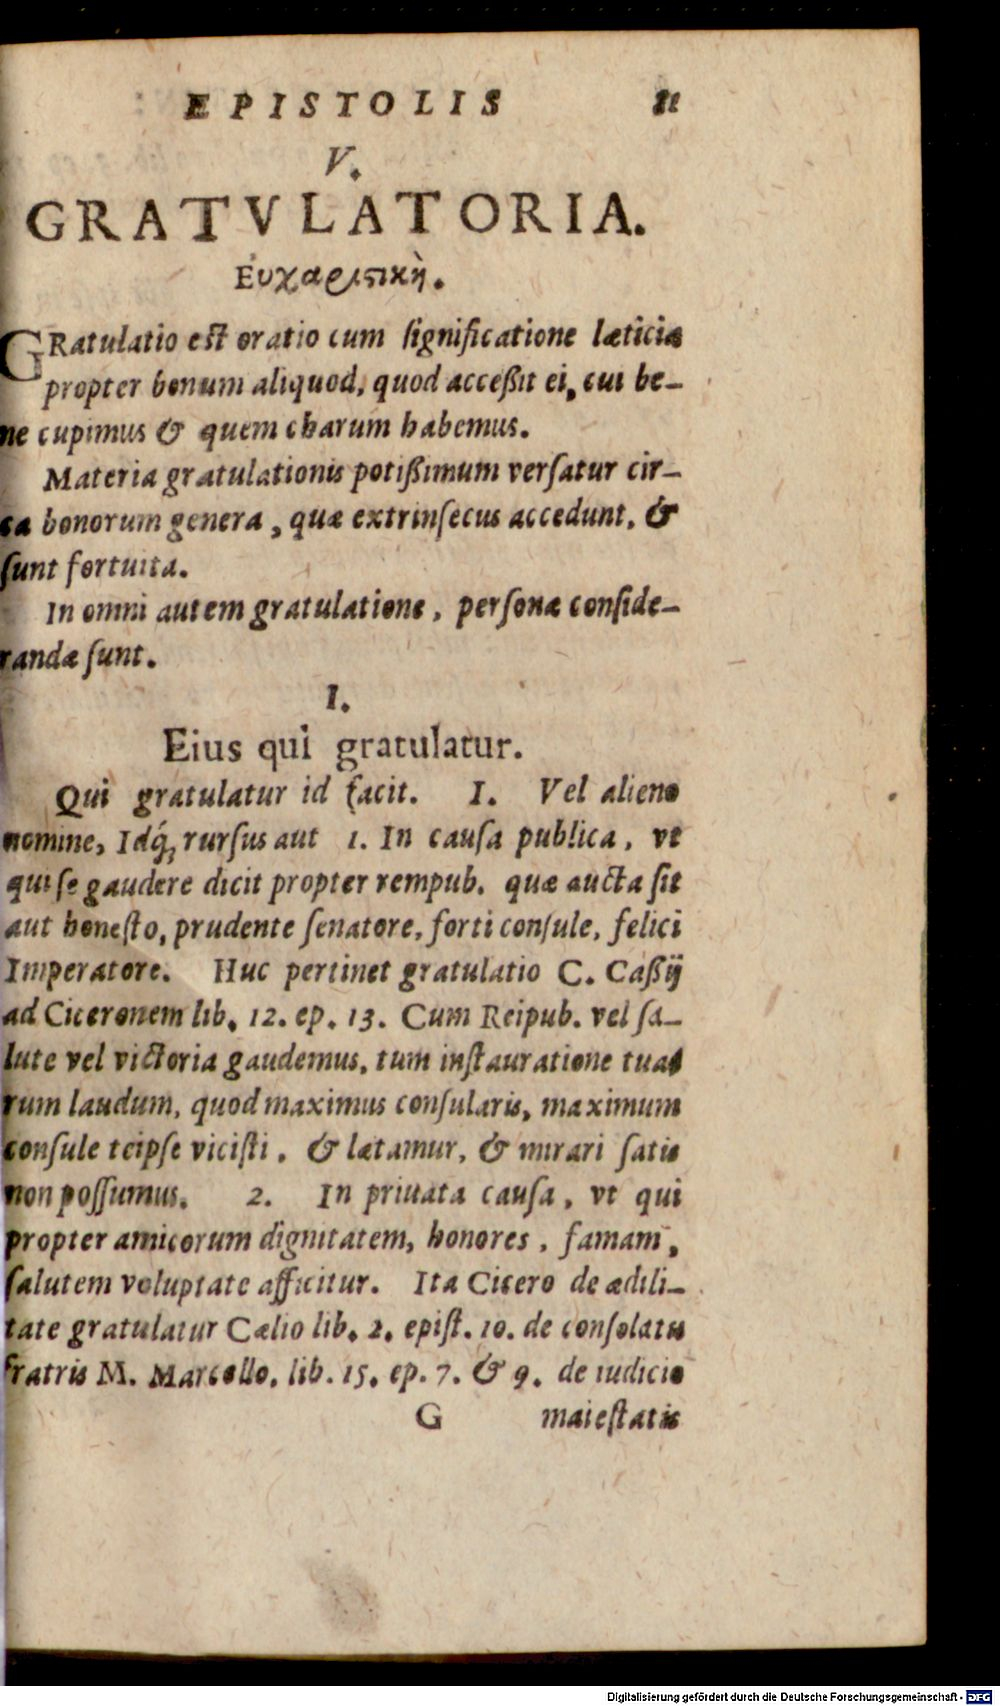 EPISTOLIS
V.
GRATVLATORIA.
Εὐχαριστικὴ.
GRatulatio est oratio cum significatione læticiæ
propter bonum aliquod, quod acceßit ei, cui be-
ne cupimus & quem charum habemus.
Materia gratulationis potißimum versatur cir-
ca bonorum genera, quæ extrinsecus accedunt, &
sunt fortuita.
In omni autem gratulatione, personæ conside-
randæ sunt.
I.
Eius qui gratulatur.
Qui gratulatur id facit. I. Vel alieno
nomine, Idq́; rursus aut 1. In causa publica, vt
qui se gaudere dicit propter rempub. quæ aucta sit
aut honesto, prudente senatore, forti consule, felici
Imperatore. Huc pertinet gratulatio C. Caßij
ad Ciceronem lib. 12. ep. 13. Cum Reipub. vel sa-
lute vel victoria gaudemus, tum instauratione tua-
rum laudum, quod maximus consularis, maximum
consule teipse vicisti, & lætamur, & mirari satis
non possumus. 2. In priuata causa, vt qui
propter amicorum dignitatem, honores, famam,
salutem voluptate afficitur. Ita Cicero de ædili-
tate gratulatur Cælio lib. 2. epist. 10. de consolatu
fratris M. Marcello, lib. 15. ep. 7. & 9. de iudicio
G maiestatis
Digitalisierung gefördert durch die Deutsche Forschungsgemeinschaft - DFG